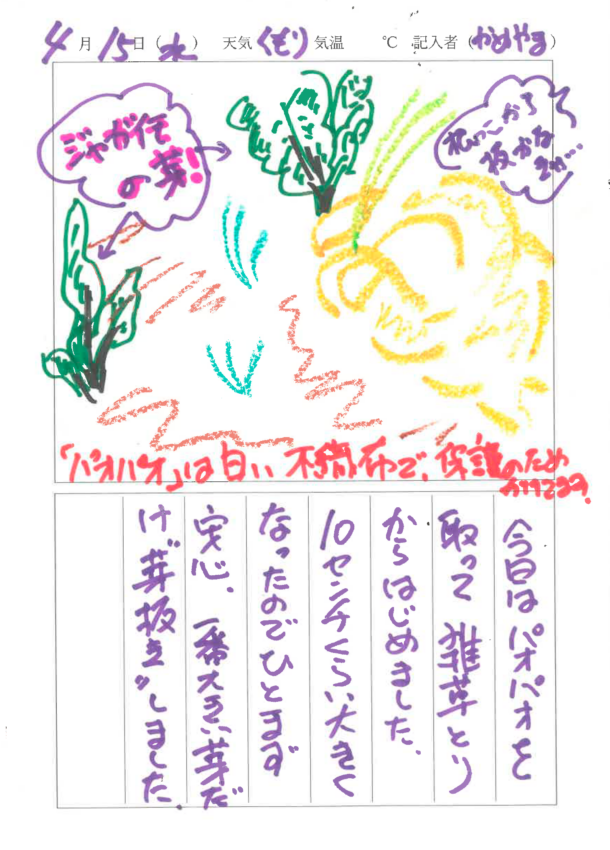 4月15日(水) 天気(くもり) 気温 ℃ 記入者(かめやま)
ジャガイモ
の芽!
根っこから
抜かな
「パオパオ」は白い不織布で、保護のため
かけてます。
今日はパオパオを
取って雑草とり
からはじめました。
10センチくらい大きく
なったのでひとまず
安心、一番大きい芽だ
け"芽抜き"しました。